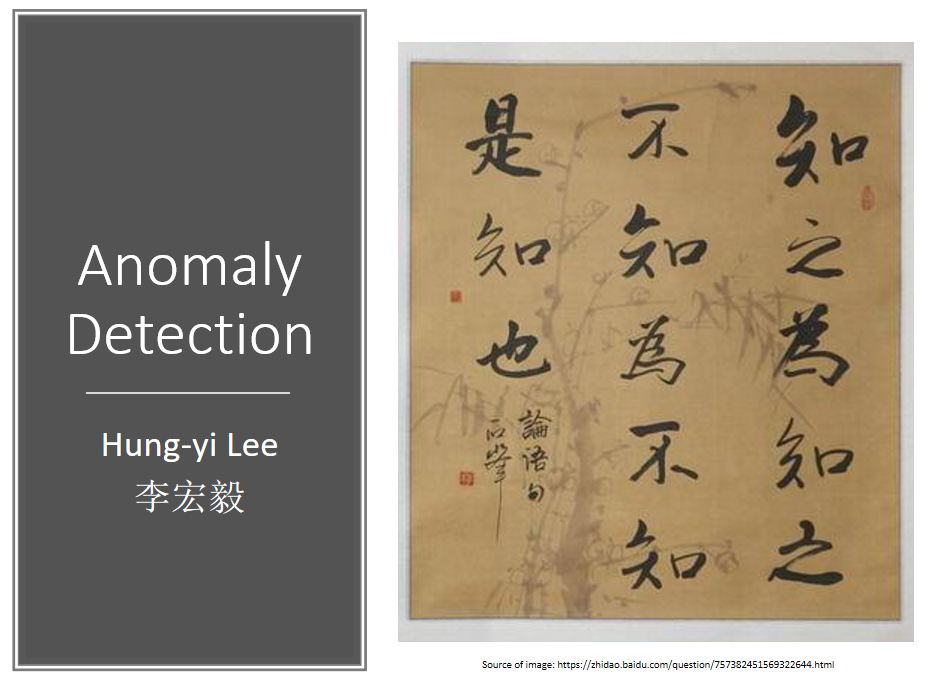 Anomaly
Detection
Hung-yi Lee
李宏毅
知之為知之
不知為不知
是知也
論語句
Source of image: https://zhidao.baidu.com/question/757382451569322644.html